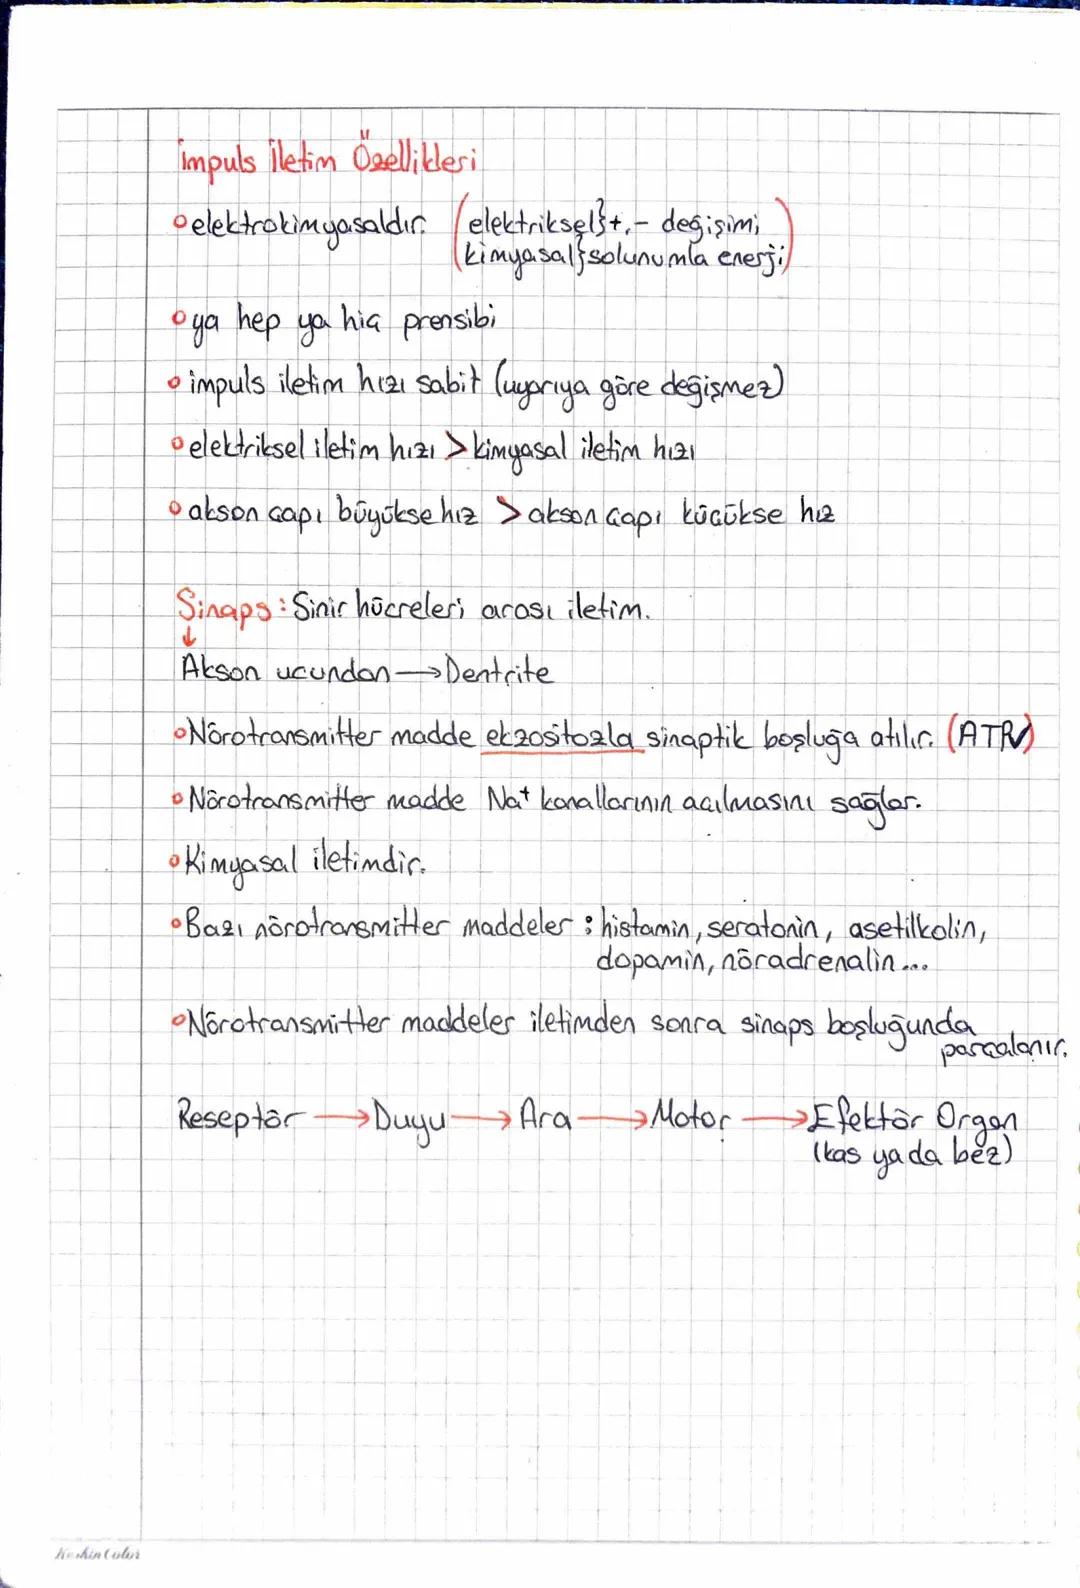 impuls İletim Özellikleri
elektrokimyasaldır. (elektriksel}+,- değişimi
kimyasal}solunumla enerji)
ya hep ya hiç prensibi
impuls iletim hızı sabit (uyarıya göre değişmez)
elektriksel iletim hızı > kimyasal iletim hızı
akson çapı büyükse hız > akson çapı küçükse hız
Sinaps: Sinir hücreleri arası iletim.
↓
Akson ucundan → Dentrite
Nörotransmitter madde ekzositozla sinaptik boşluğa atılır. (ATP✓)
Nörotransmitter madde Na+ kanallarının açılmasını sağlar.
Kimyasal iletimdir.
Bazı nörotransmitter maddeler : histamin, seratonin, asetilkolin,
dopamin, nöradrenalin...
Nörotransmitter maddeler iletimden sonra sinaps boşluğunda
parçalanır.
Reseptör → Duyu → Ara → Motor → Efektör Organ
(kas ya da bez)
Keskin Color